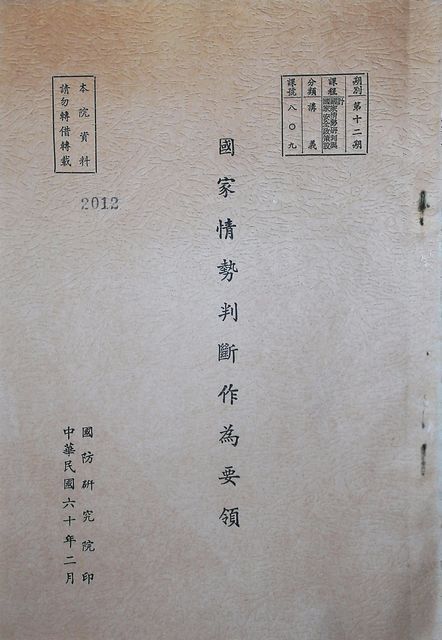 期別 第十二期
課程 國家情勢研判與國家安全政策設計
分類 講義
課號 八〇九
本院資料
請勿轉借轉載
2012
國家情勢判斷作為要領
國防研究院印
中華民國六十年二月